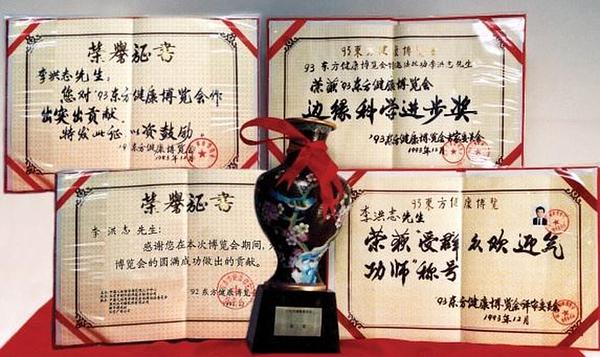 荣誉证书
李洪志先生:
您对'93东方健康博览会作
出突出贡献.
特发此证以资鼓励.
'93东方健康博览会
1993.12月
'93东方健康博览会
'93东方健康博览会
李洪志先生
荣获'93东方健康博览会
边缘科学进步奖
'93东方健康博览会
1993.12月
荣誉证书
李洪志先生:
感谢您在本次博览会期间,
博览会的圆满成功做出的贡献.
'92东方健康博览会
'93东方健康博览
李洪志先生
荣获"受群众欢迎气
功师"称号
'93东方健康博览会评审委员会
1993年12月